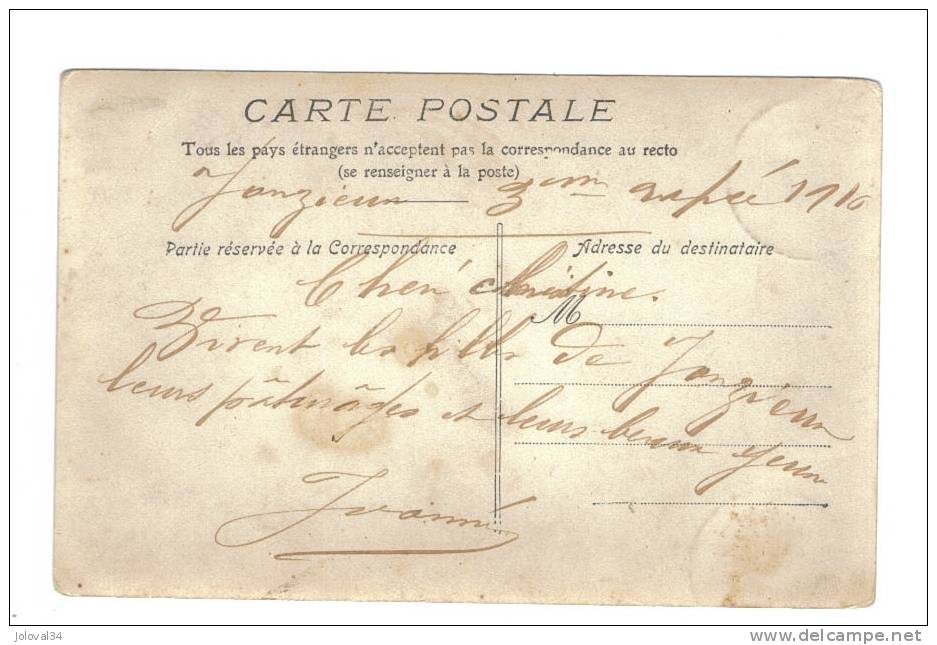 CARTE POSTALE
Tous les pays étrangers n'acceptent pas la correspondance au recto
(se renseigner à la poste)
Jonzieux 3 1910
Partie réservée à la Correspondance
Adresse du destinataire
M
Vivent les filles de Jonzieux
leurs pâturages et leurs beaux yeux
joloval34
www.delcampe.net